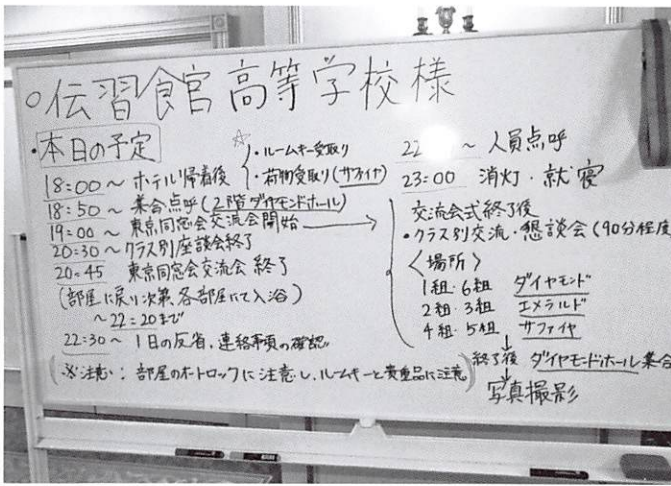 ○伝習館高等学校様
・本日の予定
18:00～ ホテル帰着後
・ルームキー受取り
・荷物受取り(サファイヤ)
18:50～ 集合点呼(2階ダイヤモンドホール)
19:00～ 東京同窓会交流会開始
20:30～クラス別座談会終了
20:45 東京同窓会交流会 終了
(部屋に戻り次第、各部屋にて入浴)
～22:20まで
22:30～ 1日の反省、連絡事項の確認
(※注意：部屋のオートロックに注意し、ルームキーと貴重品に注意)
22 ～ 人員点呼
23:00 消灯・就寝
交流会式終了後
・クラス別交流・懇談会(90分程度
〈場所〉
1組・6組 ダイヤモンド
2組・3組 エメラルド
4組・5組 サファイヤ
↓
終了後 ダイヤモンドホール集合
↓
写真撮影